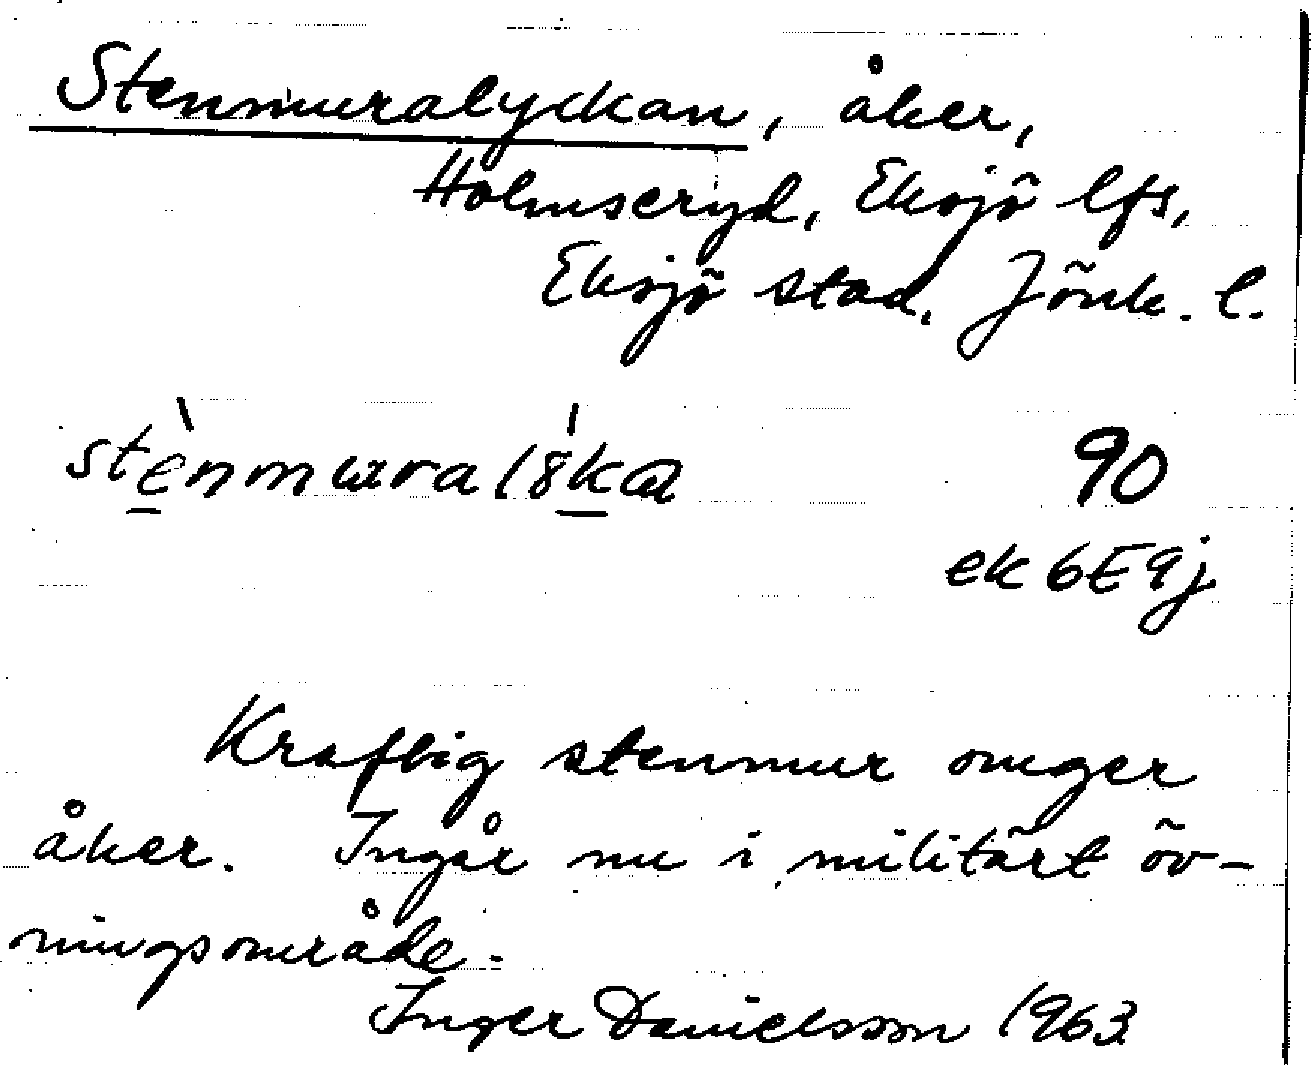 Stenmuralyckan, åker,
Holmseryd, Eksjö lfs,
Eksjö stad. Jönk. l.
90
ek 6E9j
Kraftig stenmur omger
åker. Ingår nu i militärt öv-
ningsområde.
Inger Danielsson 1963